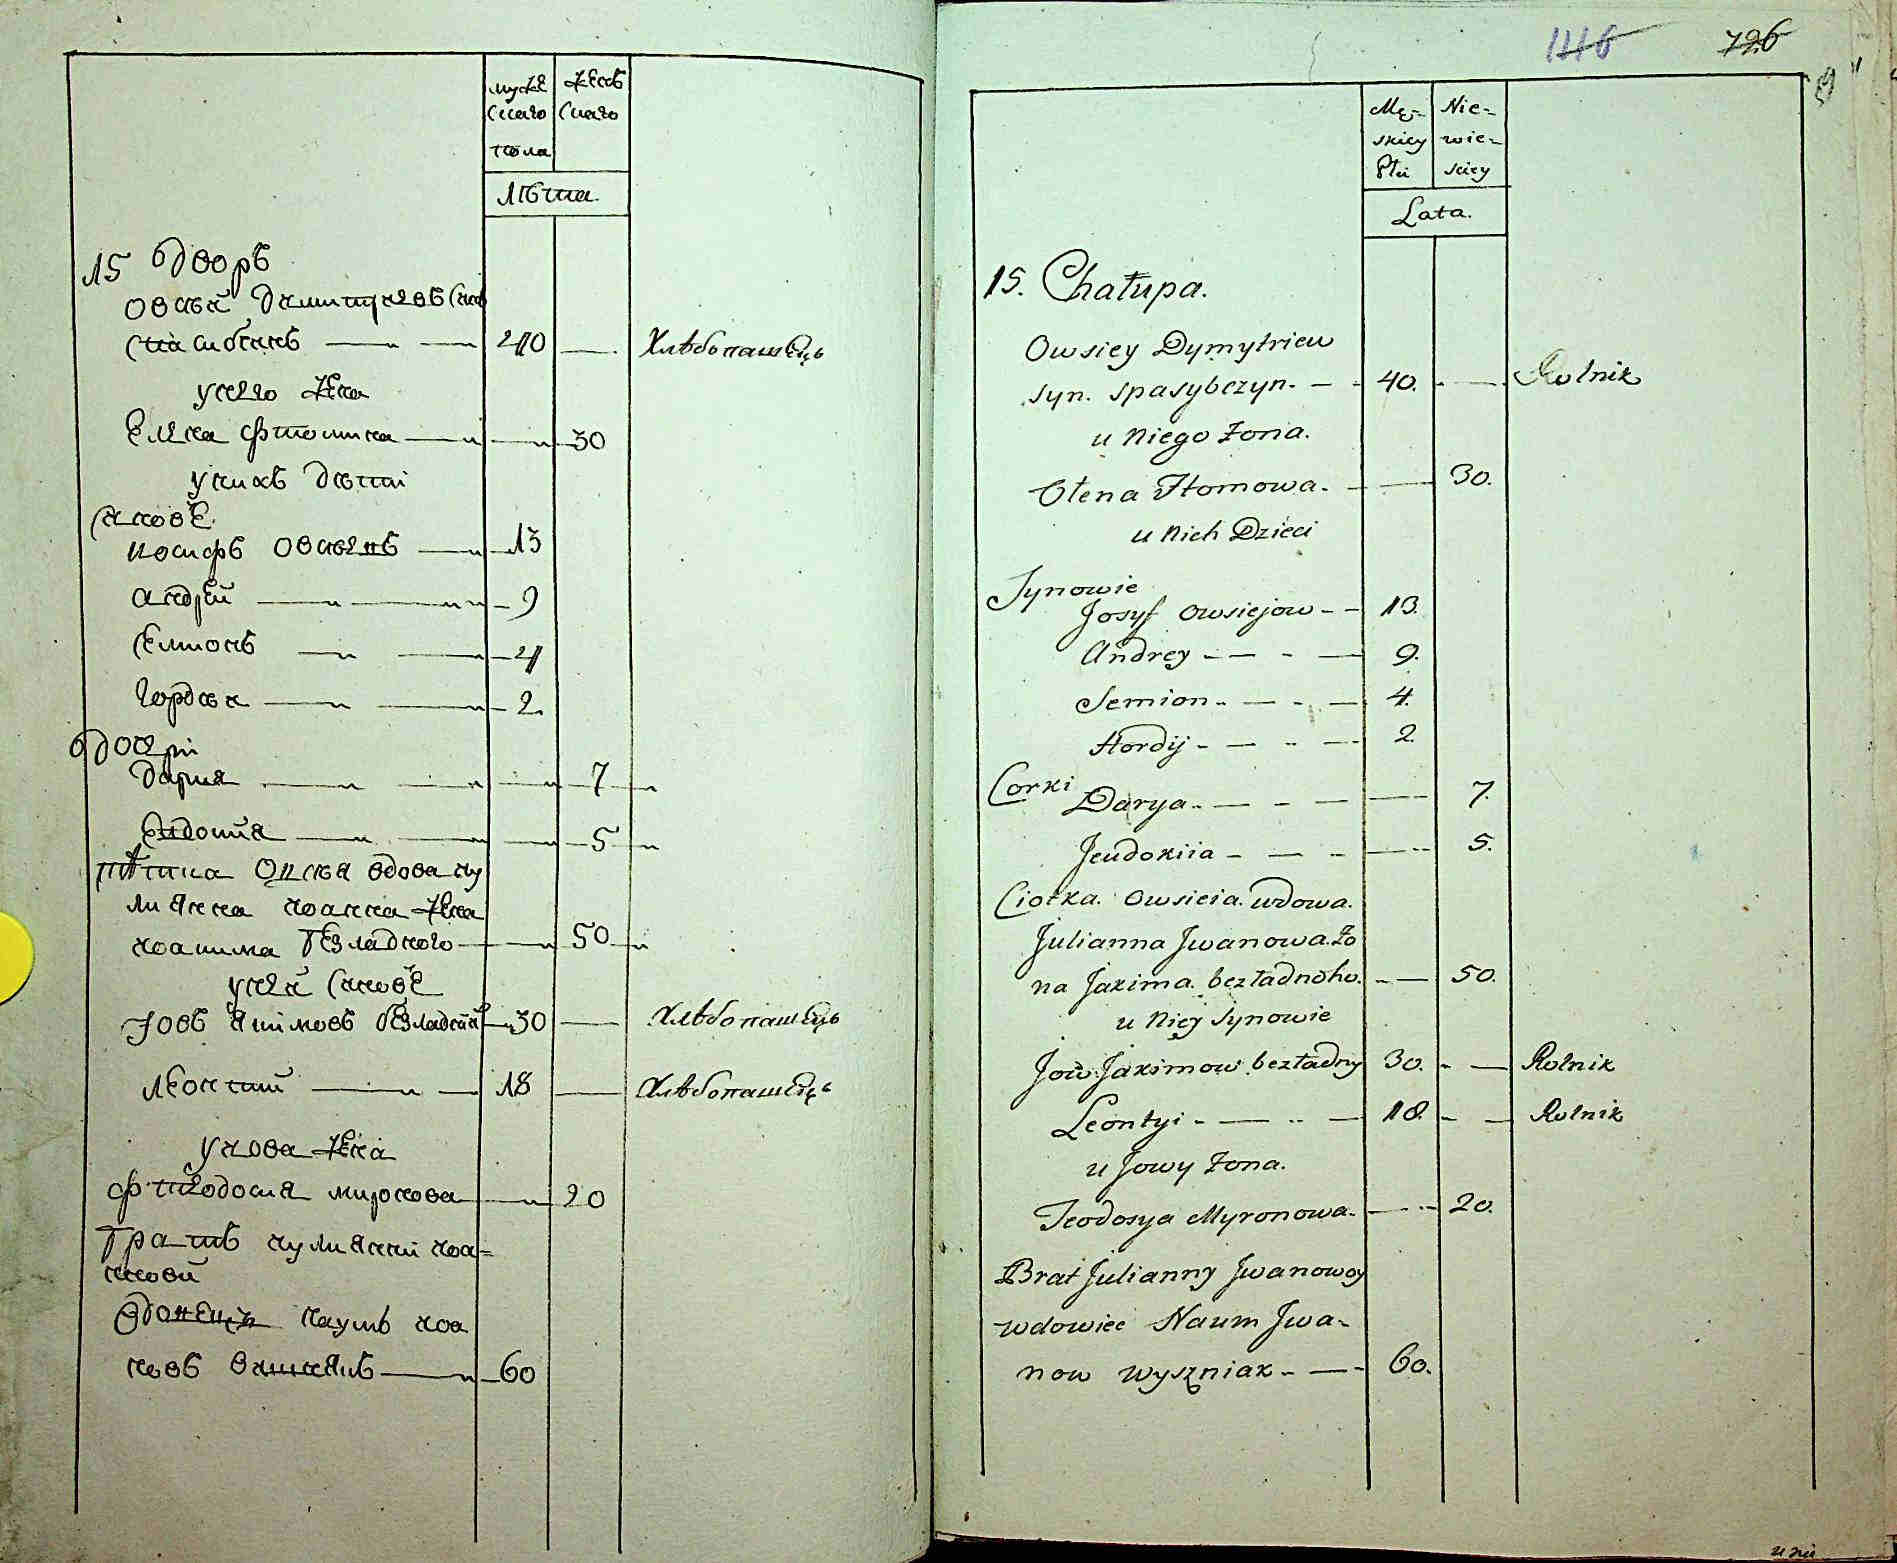 муже
скаго
пола
женъ
скаго
Лѣта.
15 дворъ
Овсѣй Дмитріевъ сынъ
40
Хлѣбопашецъ
у него жена
30
у нихъ дѣти
сынове
иосифъ овсѣевъ
13
андрей
9
семионъ
4
гордѣй
2
дочери
дария
7
Евдокия
5
тѣтка Овсѣя вдова иу
лианна иванна жена
иоакима безладного
50
у неей сынове
Іовъ Якимовъ безладній
30
Хлѣбопашецъ
леонтий
18
Хлѣбопашецъ
у иова жена
фтеодосия миронова
20
братъ иулианни ива=
новой
вдовецъ наумъ ива
новъ вишнякъ
60
1116
726
Mę-
skiey
Płci
Nie-
wie-
sciey
Lata.
15. Chałupa.
Owsiey Dymytriew
syn. Spasybczyn. 40. Rolnik
u Niego Żona.
Ołena Htomowa. 30.
u Nich Dzieci
Synowie
Josyf Owsiejow 13.
Andrey 9.
Semion 4.
Hordij 2.
Corki
Darya 7.
Jeudokiia 5.
Ciotka. Owsieia. wdowa.
Julianna Jwanowa. Żo
na Jakima. bezładnoho. 50.
u Niey Synowie
Jow. Jakimow. bezładny 30. Rolnik
Leontyi 18. Rolnik
u Jowy Żona.
Teodosya Myronowa. 20.
Brat Julianny Jwanowoy
wdowiec Naum Jwa-
now Wyszniak 60.